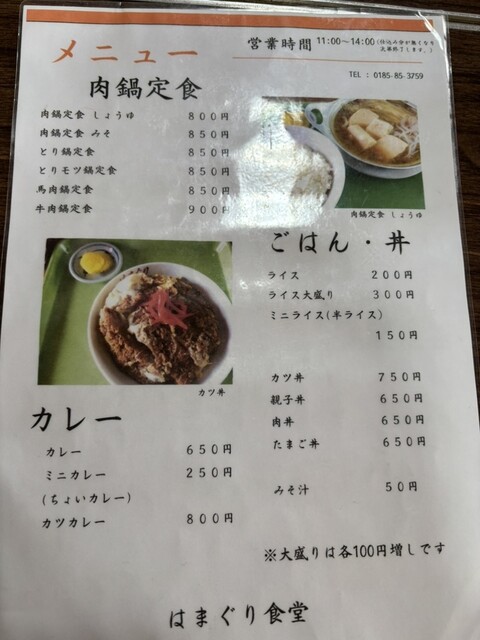 メニュー
営業時間 11:00~14:00 (仕込み分が無くなり
次第終了します。)
TEL : 0185-85-3759
肉鍋定食
肉鍋定食 しょうゆ 800円
肉鍋定食 みそ 850円
とり鍋定食 850円
とりモツ鍋定食 850円
馬肉鍋定食 850円
牛肉鍋定食 900円
肉鍋定食 しょうゆ
カツ丼
カレー
カレー 650円
ミニカレー 250円
(ちょいカレー)
カツカレー 800円
ごはん・丼
ライス 200円
ライス大盛り 300円
ミニライス(半ライス)
150円
カツ丼 750円
親子丼 650円
肉丼 650円
たまご丼 650円
みそ汁 50円
※大盛りは各100円増しです
はまぐり食堂